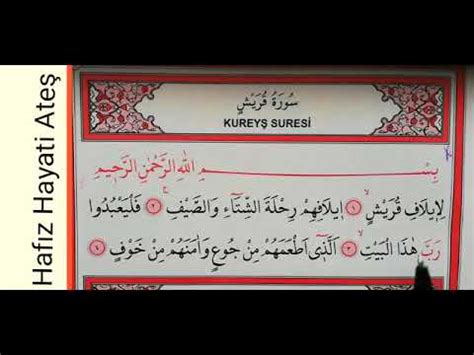 Hafız Hayati Ateş
سُورَةُ قُرَيْشٍ
KUREYŞ SURESİ
بِسْمِ اللّٰهِ الرَّحْمٰنِ الرَّحِيمِ
لِاِيلَافِ قُرَيْشٍۙ ﴿١﴾ اِيلَافِهِمْ رِحْلَةَ الشِّتَٓاءِ وَالصَّيْفِۚ ﴿٢﴾ فَلْيَعْبُدُوا
رَبَّ هٰذَا الْبَيْتِۙ ﴿٣﴾ اَلَّذ۪ٓي اَطْعَمَهُمْ مِنْ جُوعٍ وَاٰمَنَهُمْ مِنْ خَوْفٍ ﴿٤﴾